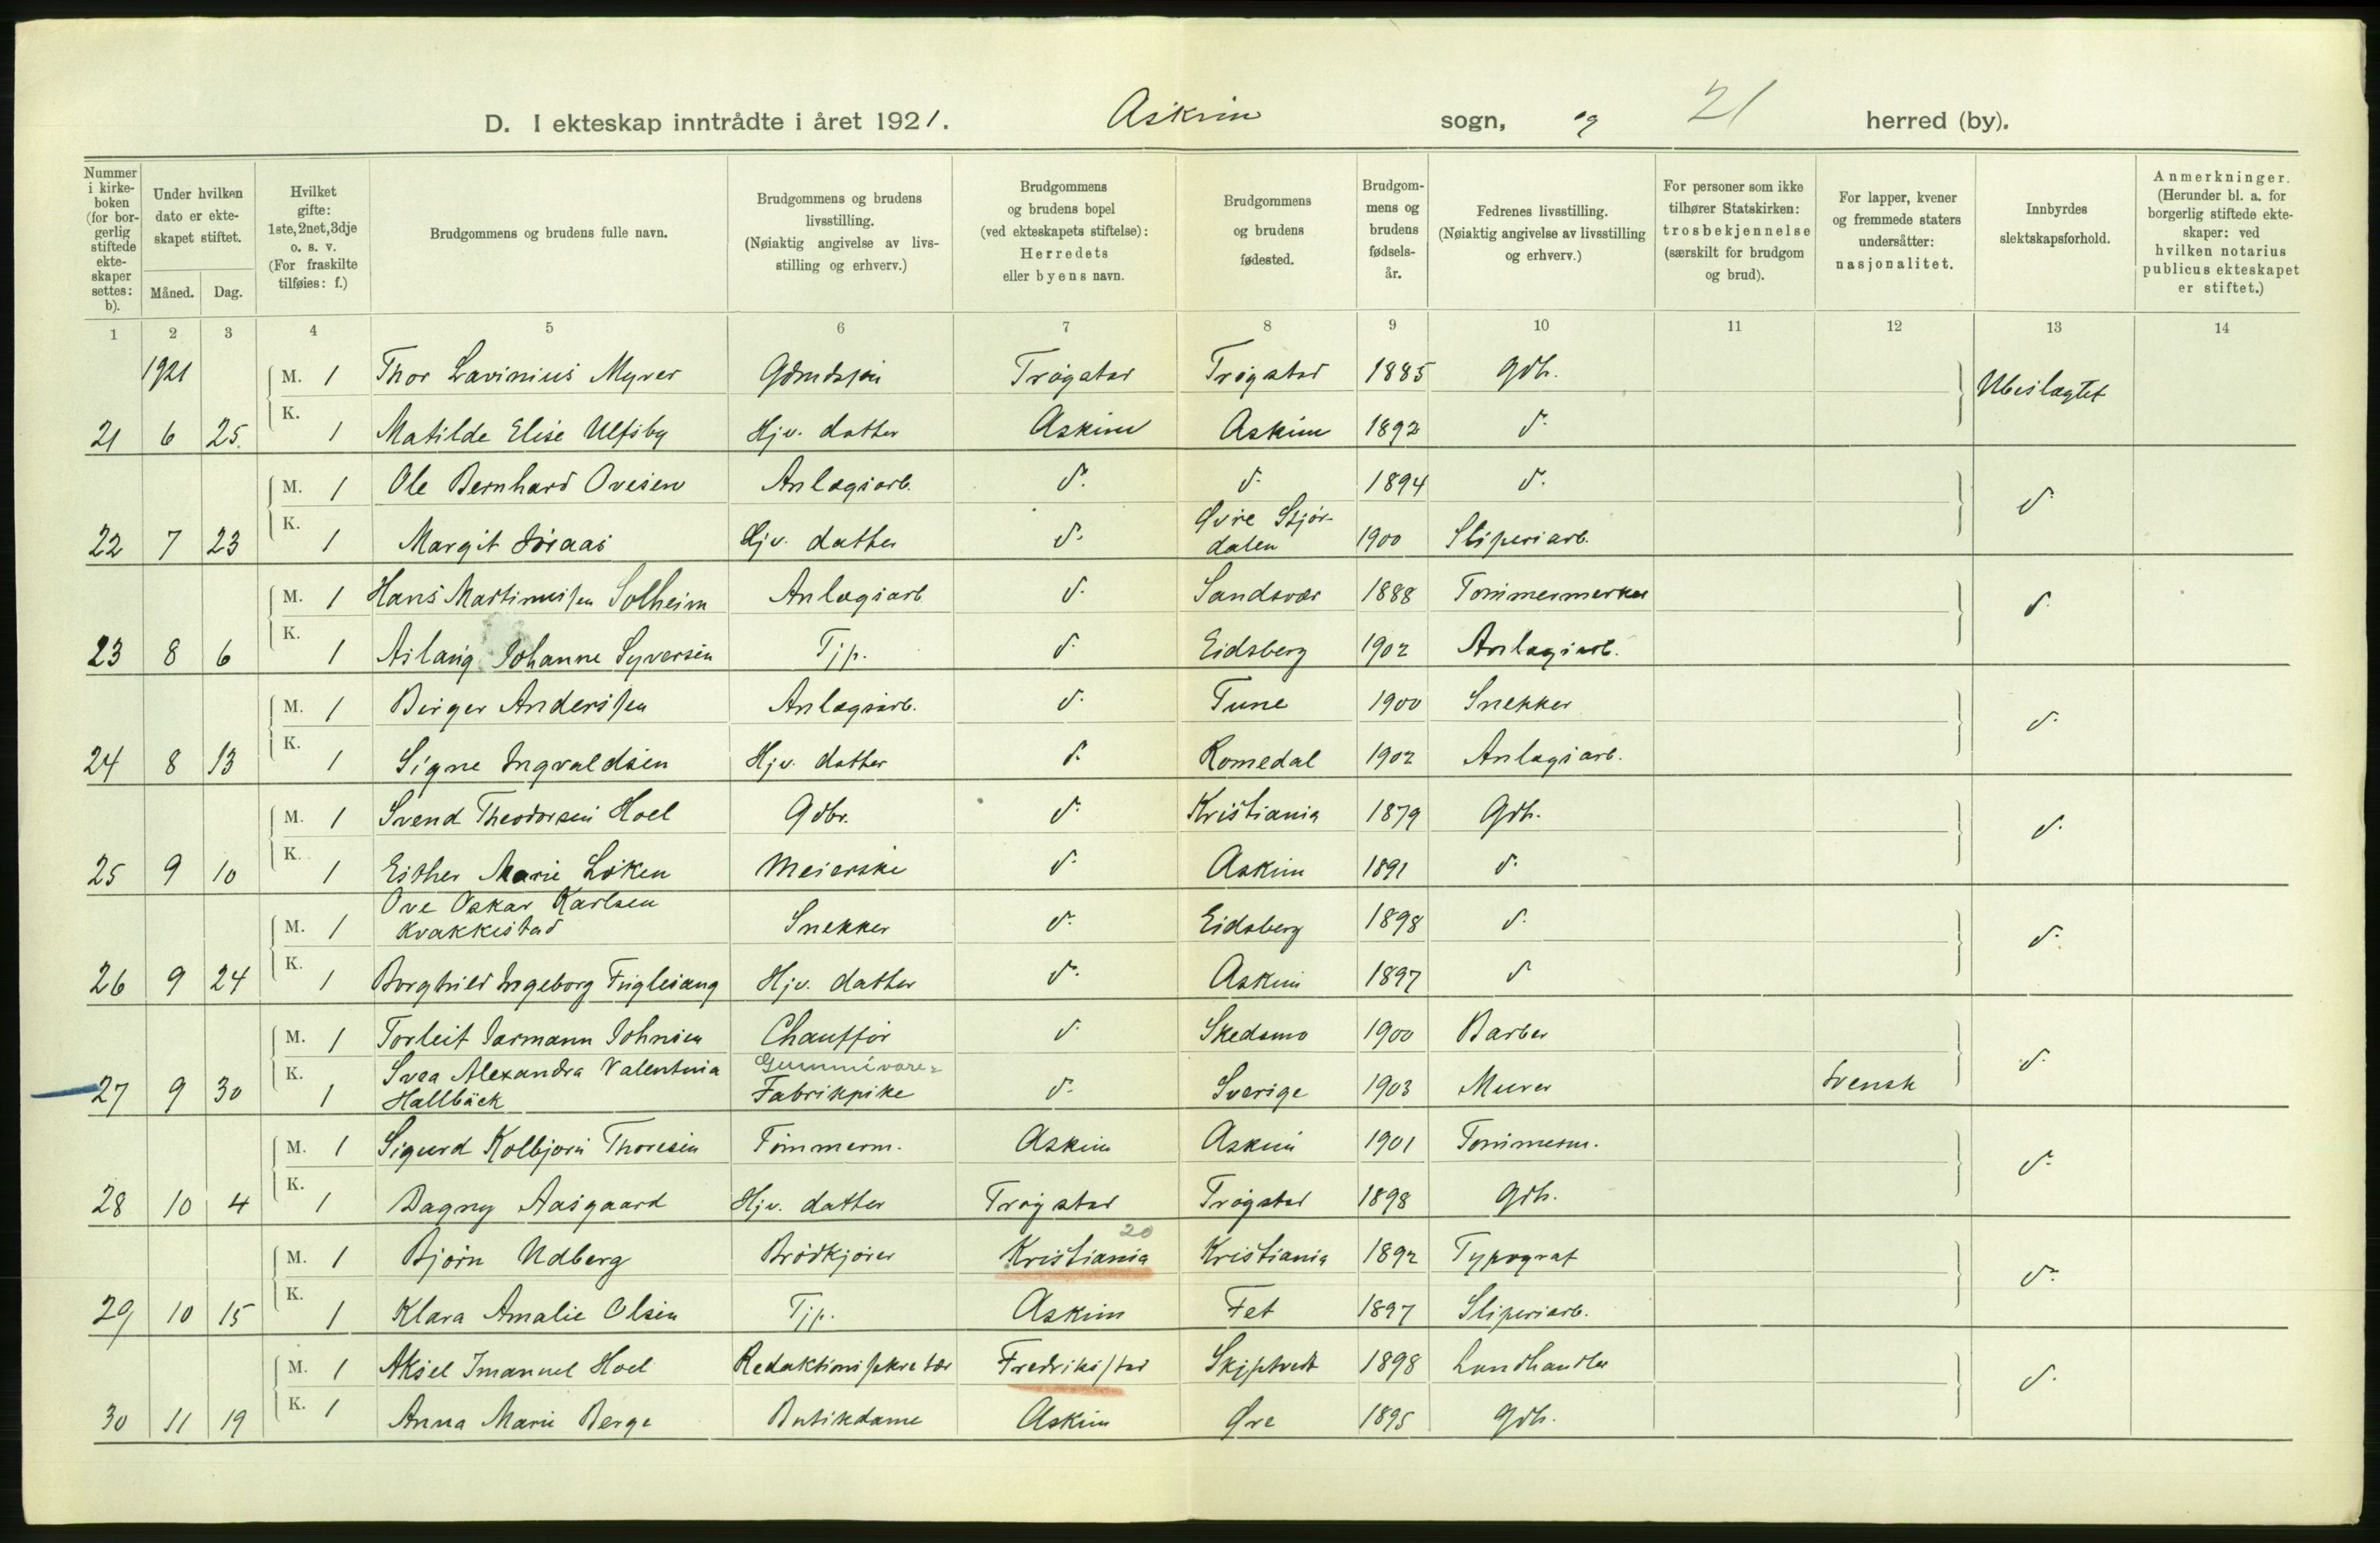 D. I ekteskap inntrådte i året 1921. Askim sogn, og 21 herred (by).
Nummer i kirke-boken (for bor-gerlig stiftede ekte-skaper settes: b).
Under hvilken dato er ekte-skapet stiftet.
Måned. Dag.
Hvilket gifte: 1ste, 2net, 3dje o. s. v. (For fraskilte tilføies: f.)
Brudgommens og brudens fulle navn.
Brudgommens og brudens livsstilling. (Nøiaktig angivelse av livs-stilling og erhverv.)
Brudgommens og brudens bopel (ved ekteskapets stiftelse): Herredets eller byens navn.
Brudgommens og brudens fødested.
Brudgom-mens og brudens fødsels-år.
Fedrenes livsstilling. (Nøiaktig angivelse av livsstilling og erhverv.)
For personer som ikke tilhører Statskirken: trosbekjennelse (særskilt for brudgom og brud).
For lapper, kvener og fremmede staters undersåtter: nasjonalitet.
Innbyrdes slektskapsforhold.
Anmerkninger. (Herunder bl. a. for borgerlig stiftede ekte-skaper: ved hvilken notarius publicus ekteskapet er stiftet.)
1 2 3 4 5 6 7 8 9 10 11 12 13 14
1921 M. 1 Thor Lavinius Myrer Trøgstad Trøgstad 1885 Gdb. Ubeslægtet
21 6 25. K. 1 Matilde Elise Ulfsby Hjv. datter Askim Askim 1892 d.
M. 1 Ole Bernhard Ovesen Anlægsarb. d. d. 1894 d. d.
22 7 23 K. 1 Margit Hjv. datter d. Øvre Stjør-dalen 1900 Sliperiarb.
M. 1 Hans Martinussen Solheim Anlægsarb d. Sandsvær 1888 Tømmermerker d.
23 8 6 K. 1 Aslaug Johanne Syversen Tjp. d. Eidsberg 1902 Anlægsarb.
M. 1 Birger Anderssen Anlægsarb. d. Tune 1900 Snekker d.
24 8 13 K. 1 Signe Ingvaldsen Hjv. datter d. Romedal 1902 Anlægsarb.
M. 1 Svend Theodorsen Hoel Gdbr. d. Kristiania 1879 Gdb. d.
25 9 10 K. 1 Esther Marie Løken Meierske d. Askim 1891 d.
M. 1 Ove Oskar Karlsen Kvakkestad Snekker d. Eidsberg 1898 d. d.
26 9 24 K. 1 Borghild Ingeborg Fuglesang Hjv. datter d. Askim 1897 d
M. 1 Torleif Jarmann Johnsen Chauffør d. Skedsmo 1900 Barber d.
27 9 30 K. 1 Svea Alexandra Valentina Hallbäck Gummivare-Fabrikpike d. Sverige 1903 Murer Svensk
M. 1 Sigurd Kolbjørn Thoresen Tømmerm. Askim Askim 1901 Tømmerm. d.
28 10 4 K. 1 Dagny Aasgaard Hjv. datter Trøgstad Trøgstad 1898 Gdb.
20
M. 1 Bjørn Udberg Brødkjører Kristiania Kristiania 1892 Typograf d.
29 10 15 K. 1 Klara Amalie Olsen Tjp. Askim Fet 1897 Sliperiarb.
M. 1 Aksel Imanuel Hoel Redaktionssekretær Fredriksstad Skiptvedt 1898 Landhandler d.
30 11 19 K. 1 Anna Marie Berge Butikdame Askim Øre 1895 Gdb.